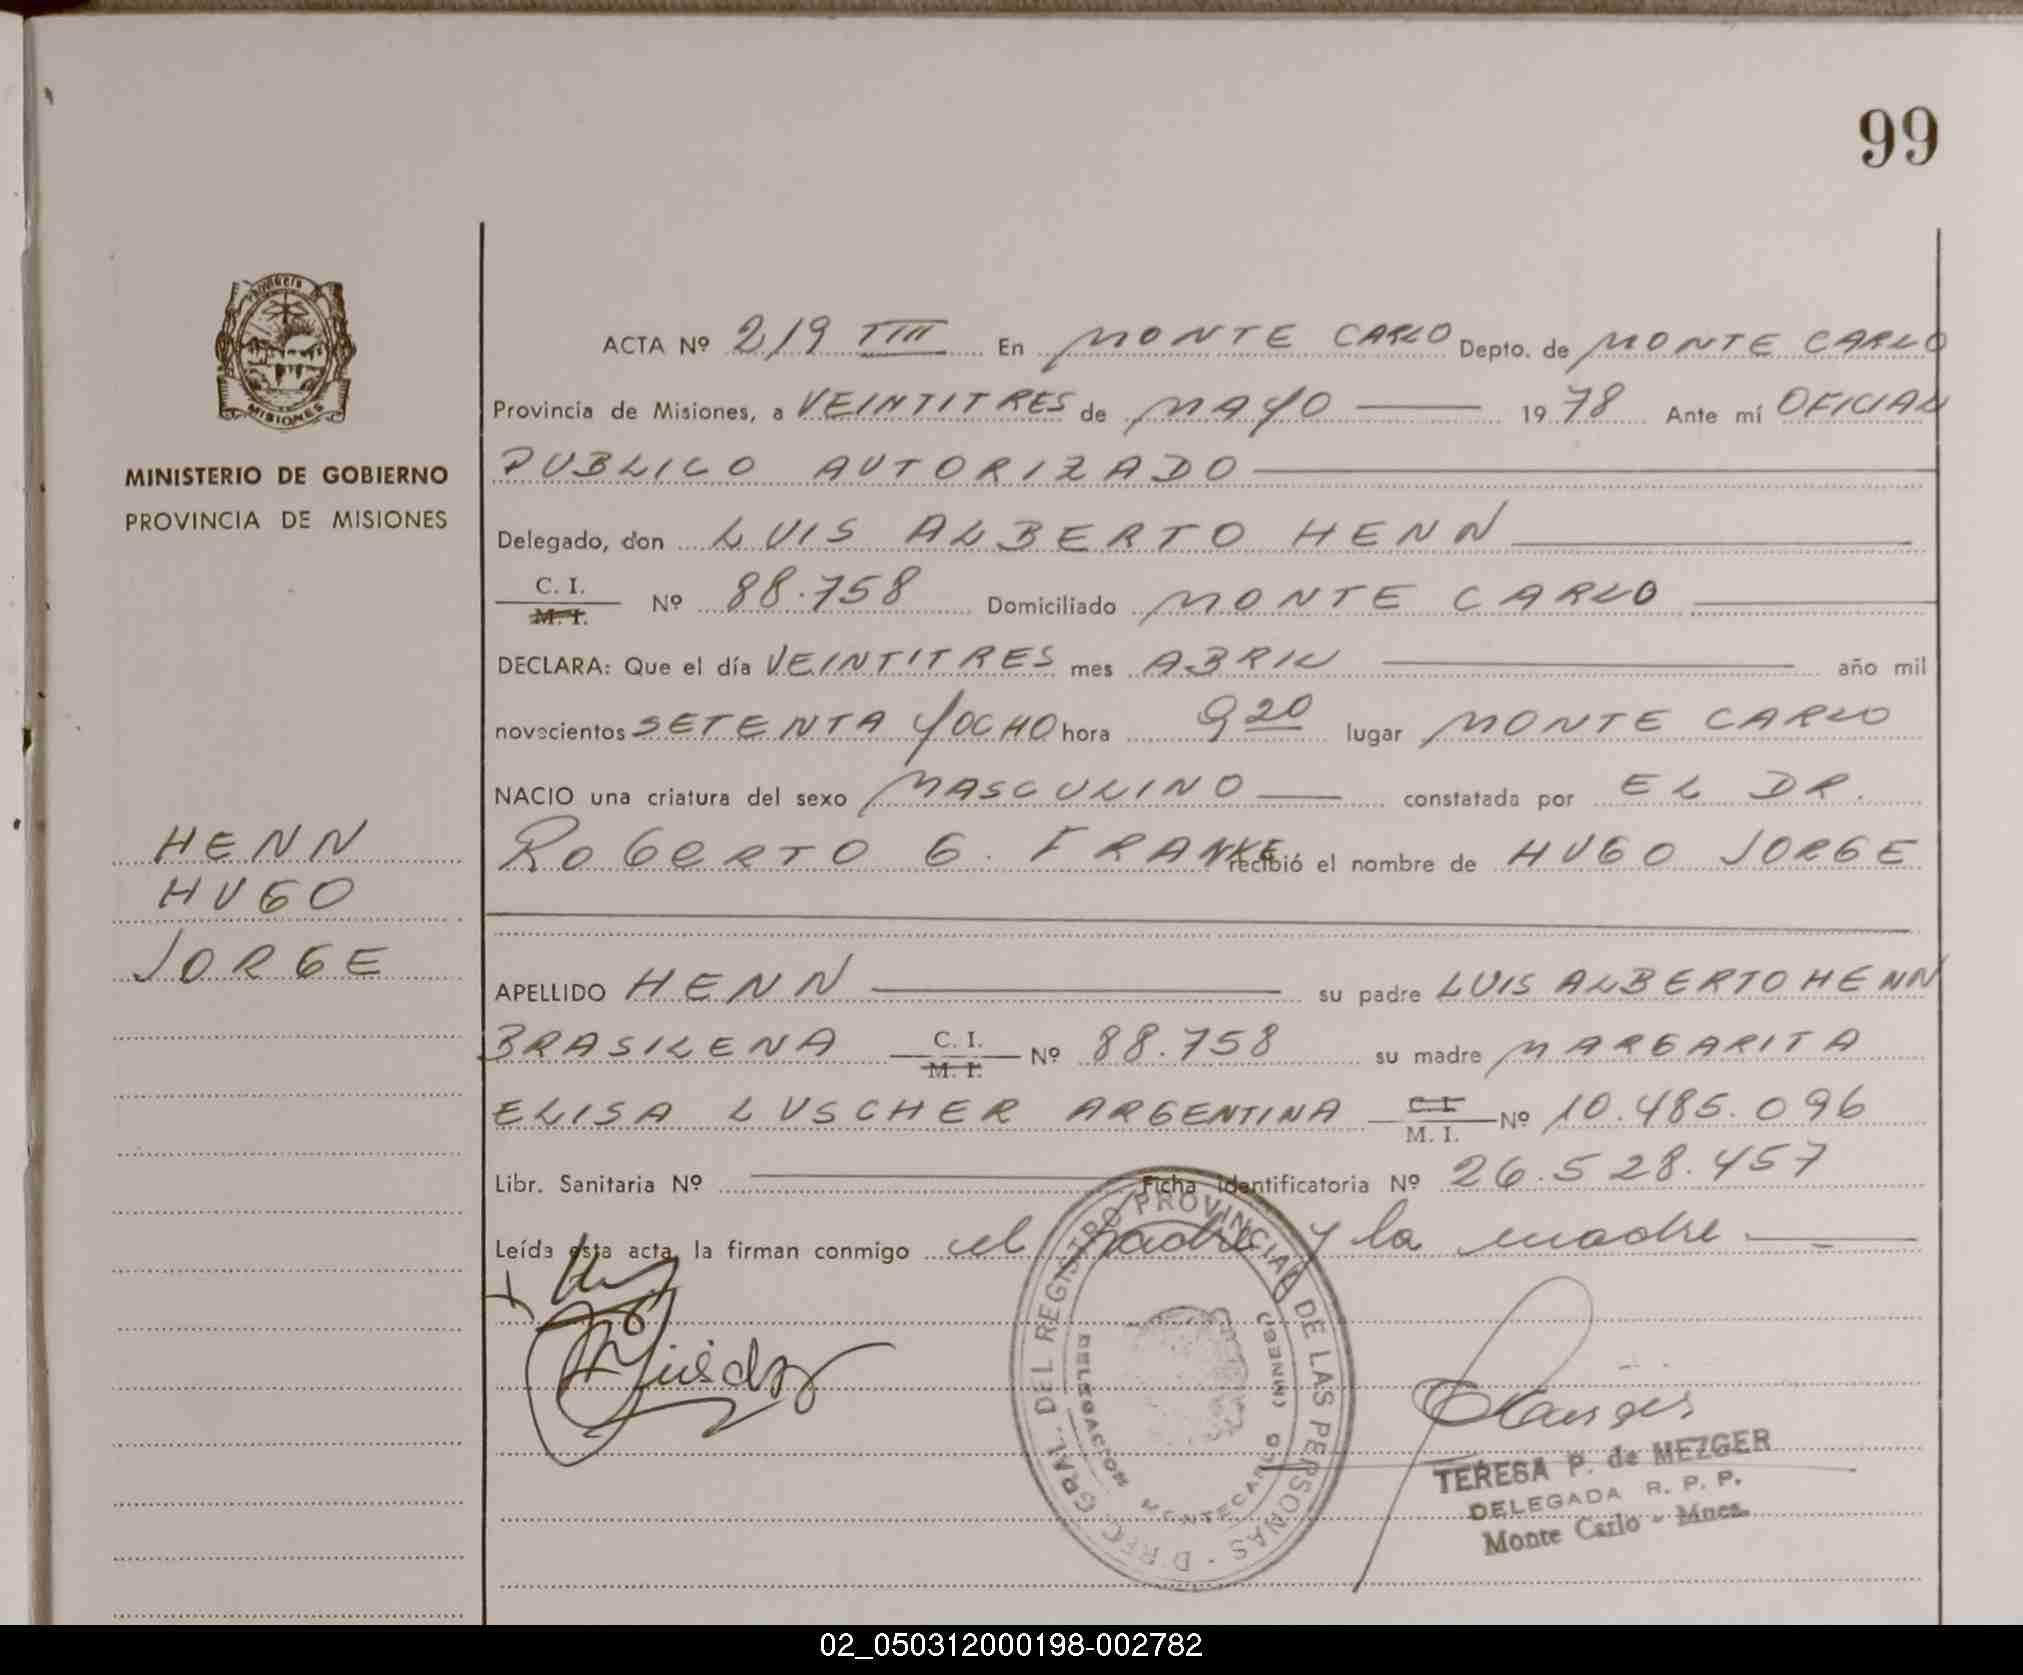 99
Provincia de
MISIONES
MINISTERIO DE GOBIERNO
PROVINCIA DE MISIONES
HENN
HUGO
JORGE
ACTA Nº 219 TIII En MONTE CARLO Depto. de MONTE CARLO
Provincia de Misiones, a VEINTITRES de MAYO 1978 Ante mí OFICIAL
PUBLICO AUTORIZADO
Delegado, don LUIS ALBERTO HENN
C. I.
M. I. Nº 88.758 Domiciliado MONTE CARLO
DECLARA: Que el día VEINTITRES mes ABRIL año mil
novecientos SETENTA Y OCHO hora 9 20 lugar MONTE CARLO
NACIO una criatura del sexo MASCULINO constatada por EL DR.
ROBERTO G. FRANKE recibió el nombre de HUGO JORGE
APELLIDO HENN su padre LUIS ALBERTO HENN
BRASILENA C. I. M. I. Nº 88.758 su madre MARGARITA
ELISA LUSCHER ARGENTINA C. I. M. I. Nº 10.485.096
Libr. Sanitaria Nº Ficha identificatoria Nº 26.528.457
Leída esta acta, la firman conmigo el padre y la madre
DIREC. GRAL. DEL REGISTRO PROVINCIAL DE LAS PERSONAS
DELEGACION MONTECARLO
TERESA P. de MEZGER
DELEGADA R. P. P.
Monte Carlo - Mnes.
02_050312000198-002782